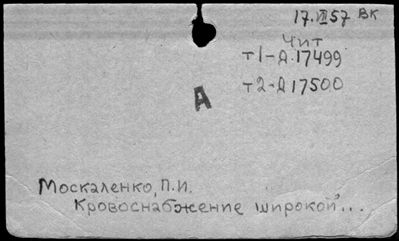 17.VII57 ВК
Чит
т1-А.17499
т2-А17500
А
Москаленко, П.И.
Кровоснабжение широкой...